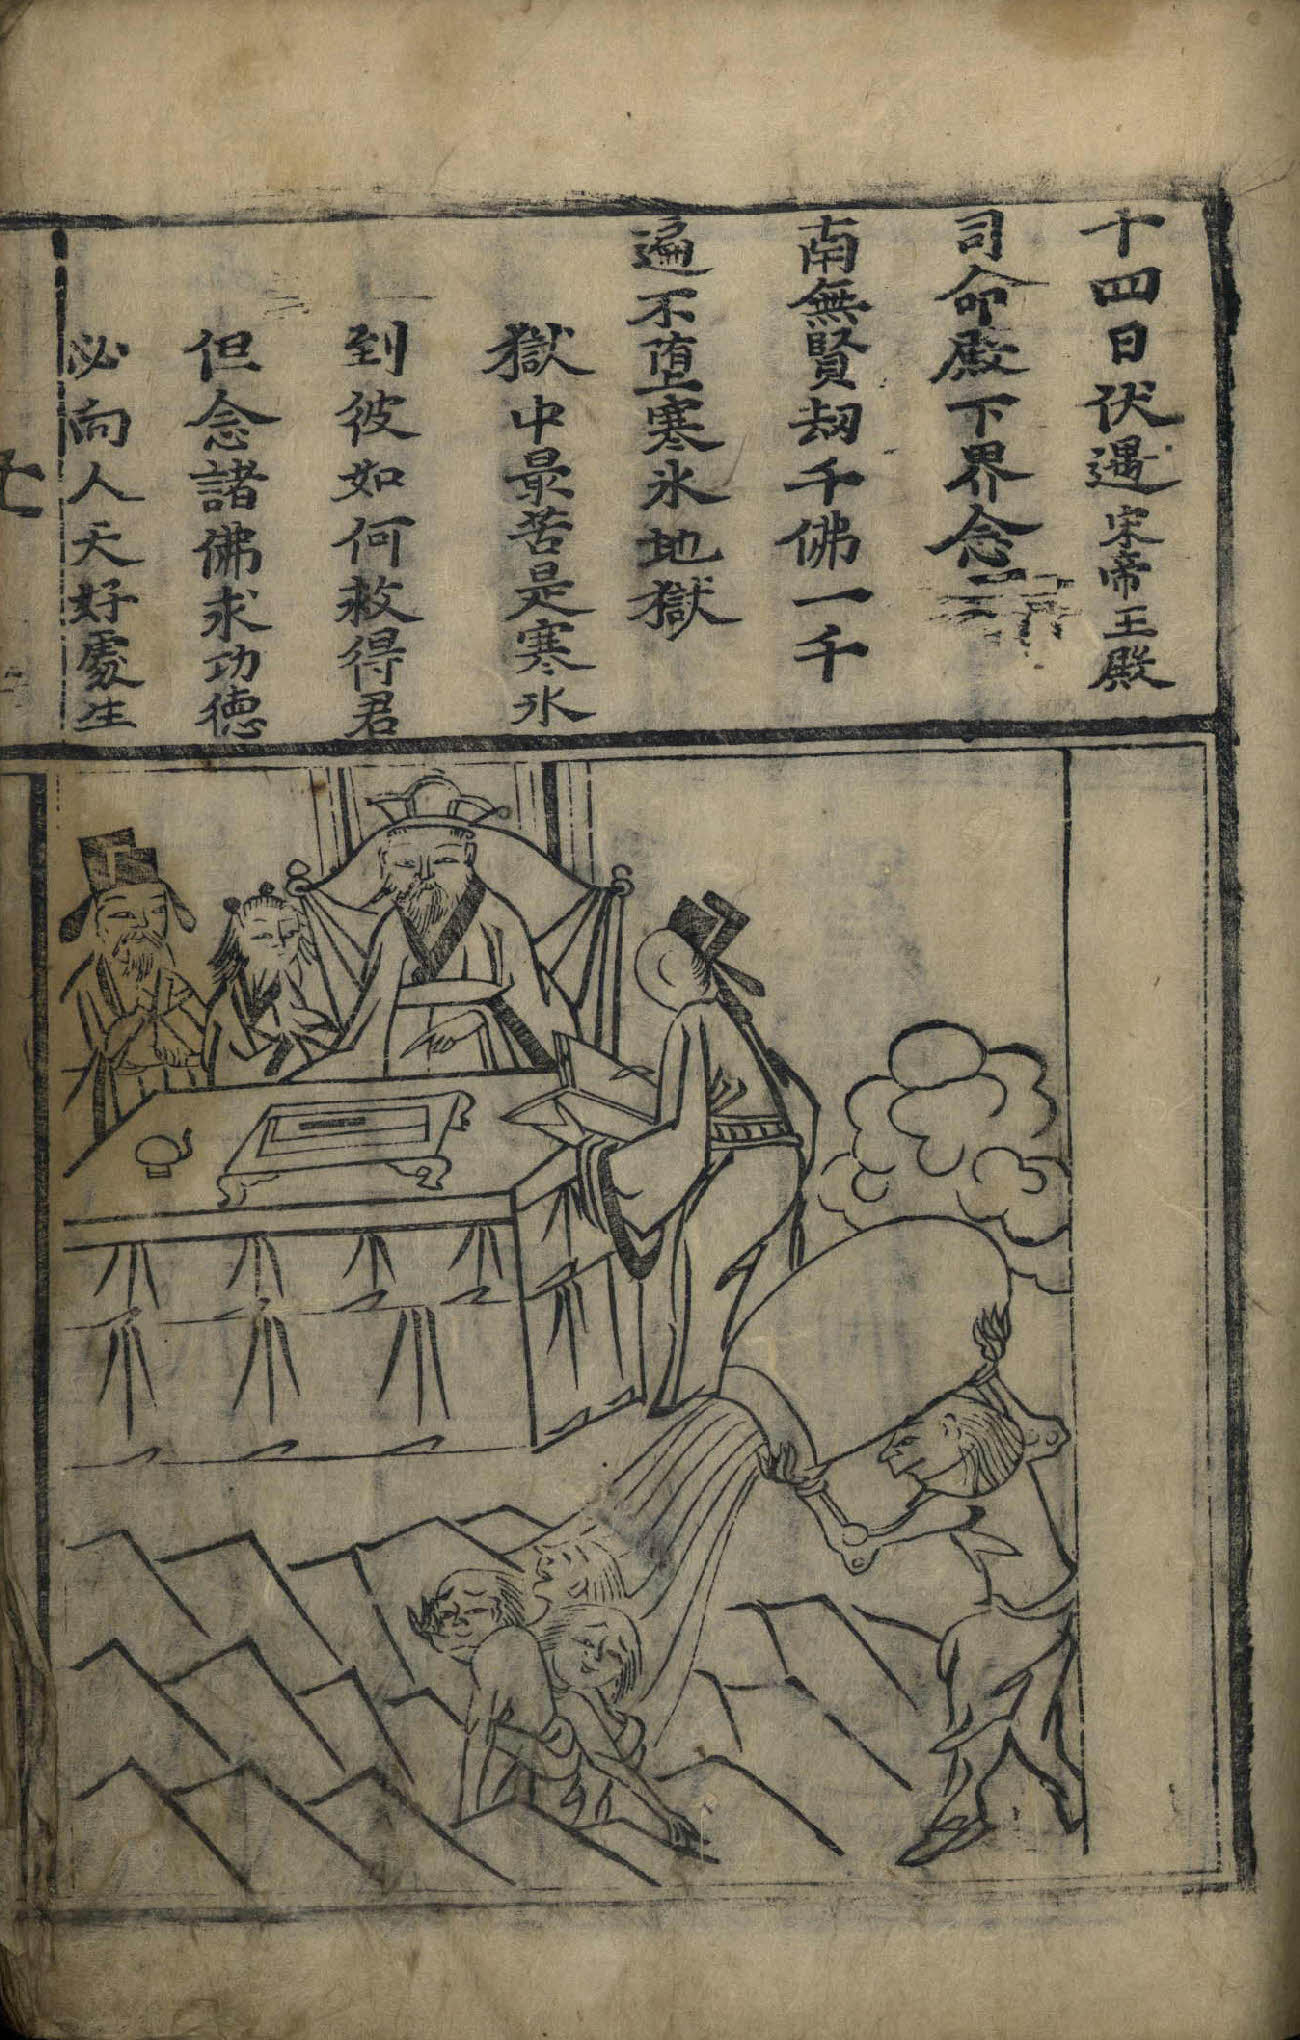 十四日伏遇宋帝王殿
司命殿下界念
南無賢刼千佛一千
遍不墮寒氷地獄
獄中最苦是寒氷
到彼如何救得君
但念諸佛求功德
必向人天好處生